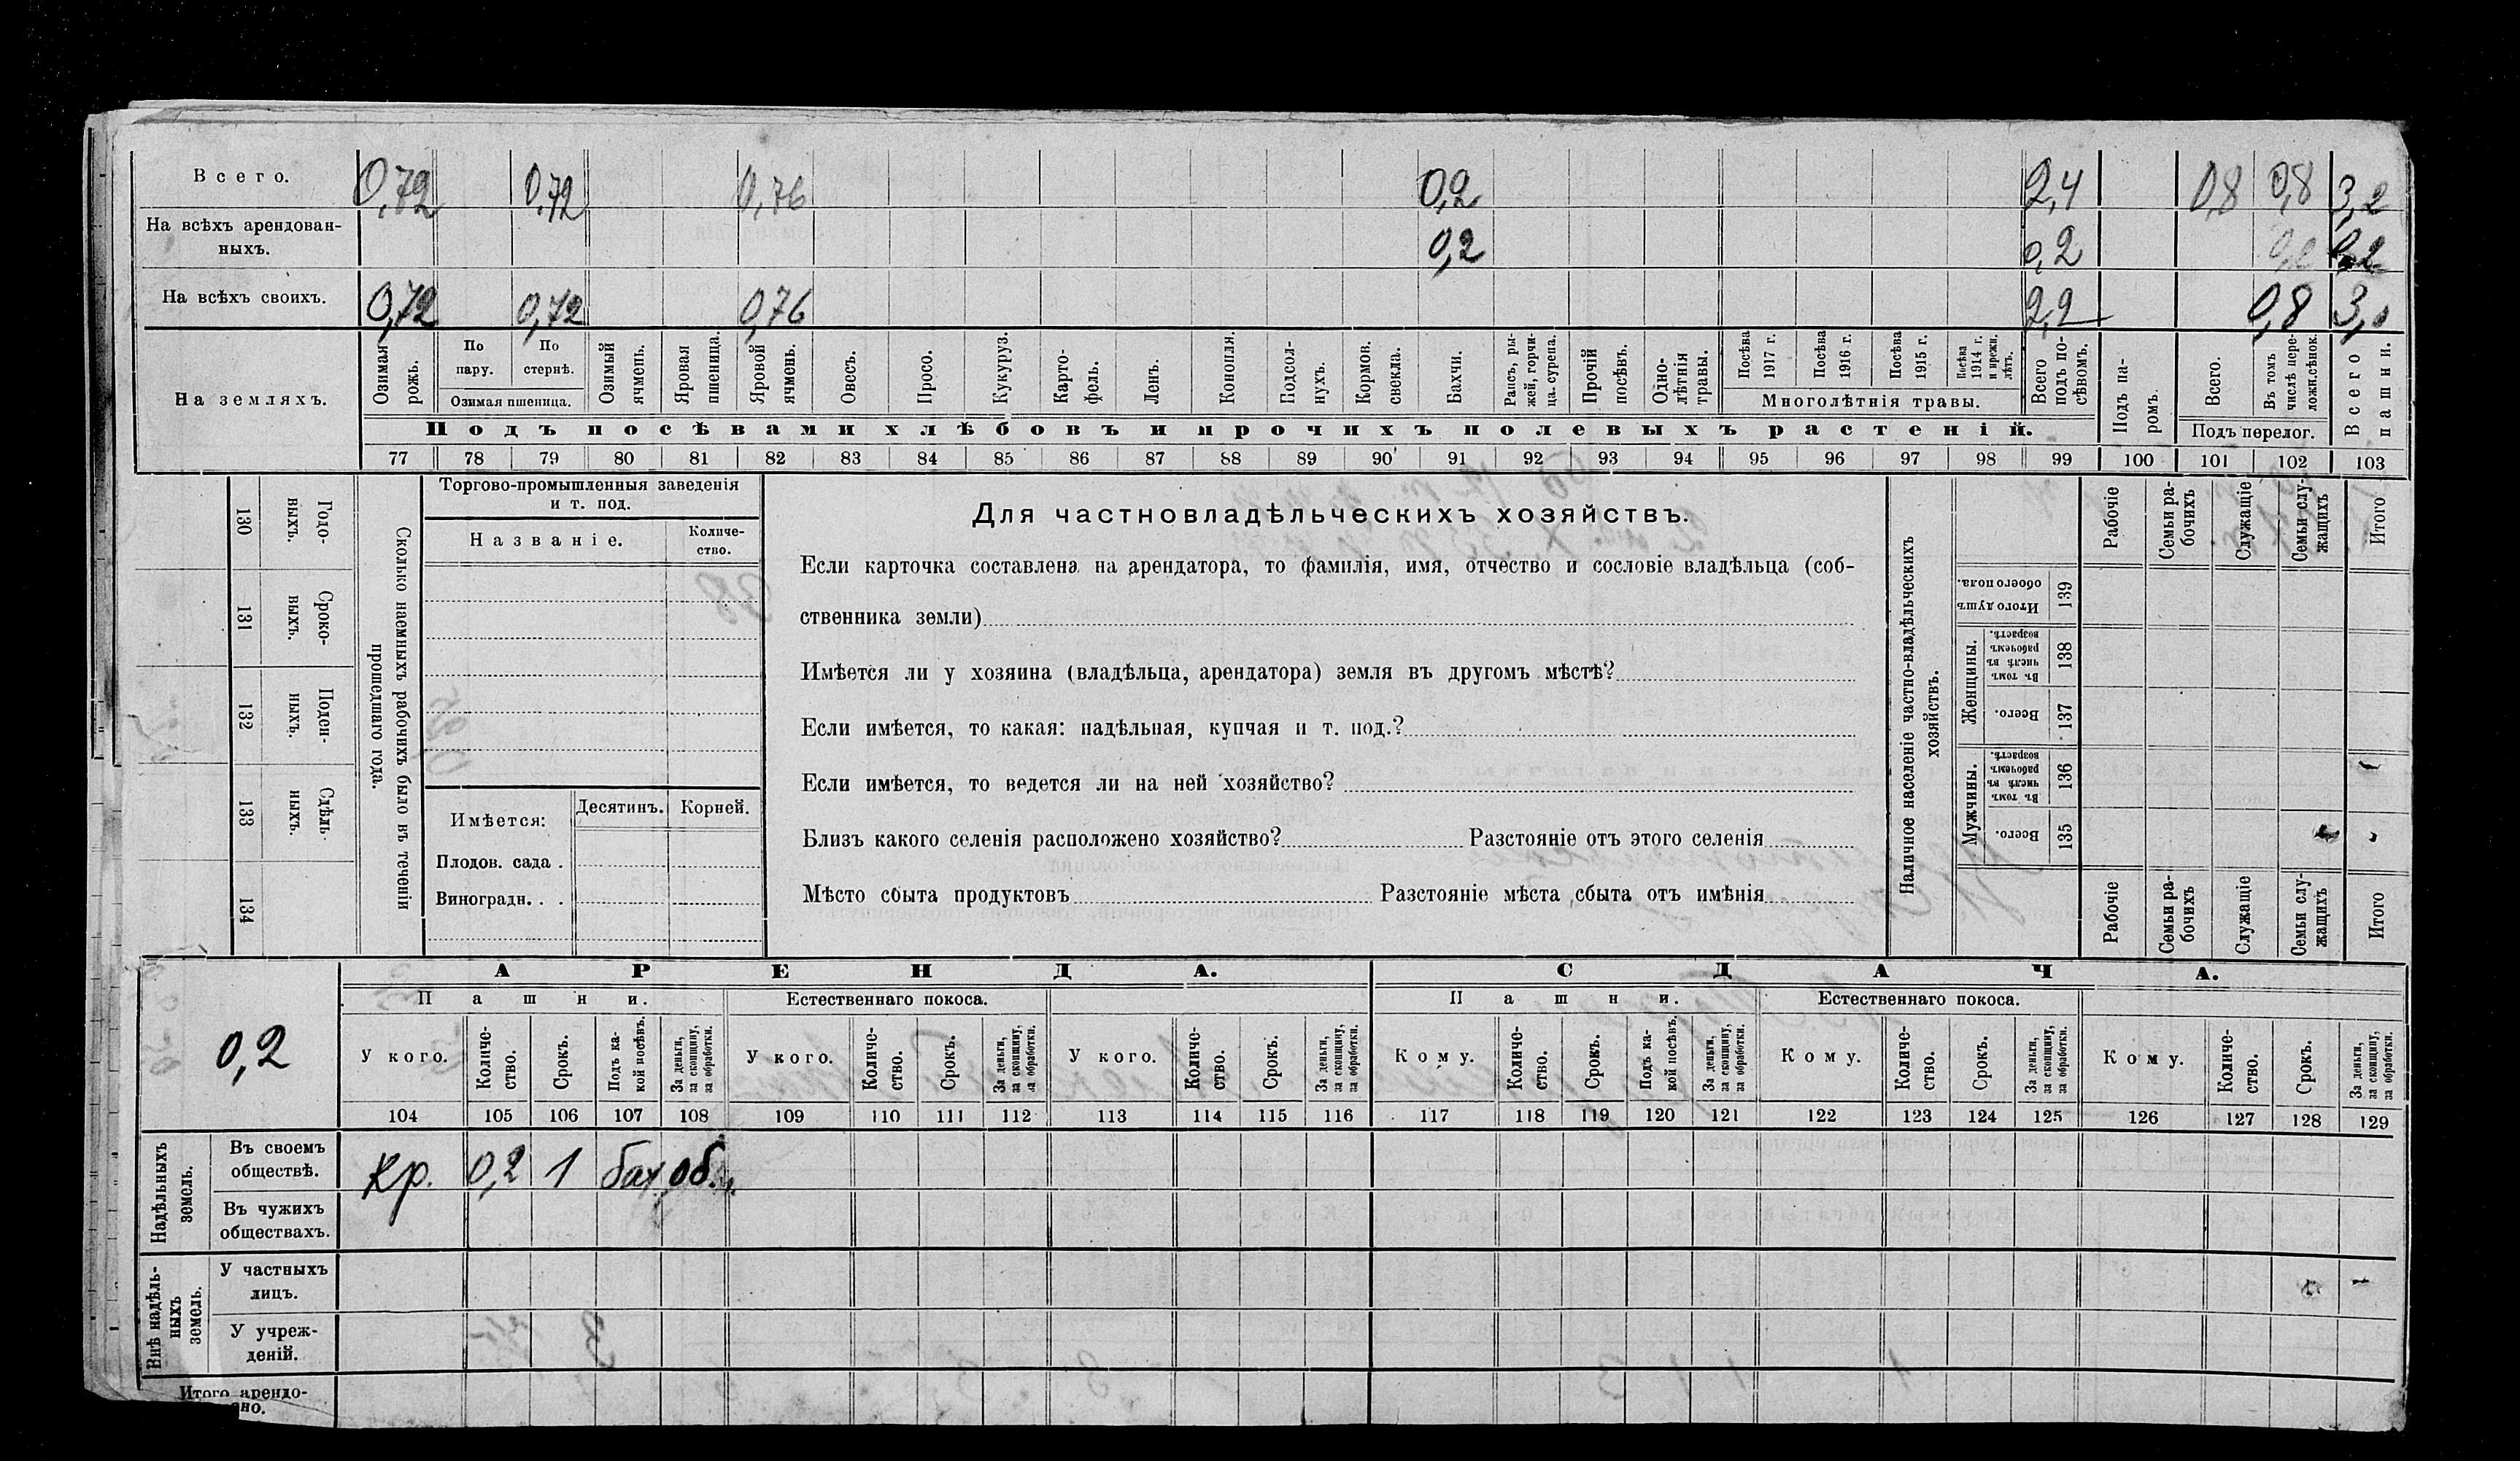 Всего. 0,72 0,72 0,76 0,2 2,4 0,8 0,8 3,2
На всѣхъ арендован-
ныхъ. 0,2 0,2 0,2
На всѣхъ своихъ. 0,72 0,72 0,76 2,2 0,8 3,0
На земляхъ.
Озимая рожь.
По пару.
По стернѣ.
Озимая пшеница.
Озимый ячмень.
Яровая пшеница.
Яровой ячмень.
Овесъ.
Просо.
Кукуруз.
Карто-
фель.
Ленъ.
Конопля.
Подсол-
нухъ.
Кормов.
свекла.
Бахчи.
Рапсъ, ры-
жей, горчи-
ца. сурепа.
Прочій
посѣвъ.
Одно-
лѣтнія
травы.
Посѣва
1917 г.
Посѣва
1916 г.
Посѣва
1915 г.
Посѣва
1914 г.
и прежн.
лѣтъ.
Многолѣтнія травы.
Всего
подъ по-
сѣвомъ.
Подъ па-
ромъ.
Всего.
Въ томъ
числѣ пере-
ложн.сѣнок.
Подъ перелог.
Всего
пашни.
Подъ посѣвами хлѣбовъ и прочихъ полевыхъ растеній.
77 78 79 80 81 82 83 84 85 86 87 88 89 90 91 92 93 94 95 96 97 98 99 100 101 102 103
130 Годо-
ныхъ.
131 Сроко-
выхъ.
132 Поден-
ныхъ.
133 Сдѣль-
ныхъ.
134
Сколько наемныхъ рабочихъ было въ теченіи
прошедшаго года.
Торгово-промышленныя заведенія
и т. под.
Названіе.
Количе-
ство.
Имѣется:
Десятинъ.
Корней.
Плодов. сада .
Виноградн. . .
Для частновладѣльческихъ хозяйствъ.
Если карточка составлена на арендатора, то фамилія, имя, отчество и сословіе владѣльца (соб-
ственника земли)
Имѣется ли у хозяина (владѣльца, арендатора) земля въ другомъ мѣстѣ?
Если имѣется, то какая: надѣльная, купчая и т. под.?
Если имѣется, то ведется ли на ней хозяйство?
Близъ какого селенія расположено хозяйство? Разстояніе отъ этого селенія
Мѣсто сбыта продуктовъ Разстояніе мѣста сбыта отъ имѣнія
Наличное населеніе частно-владѣльческихъ
хозяйствъ.
Рабочіе
Семьи ра-
бочихъ
Служащіе
Семьи слу-
жащихъ
Итого
Итого душъ
обоего пола.
139
Женщины.
Въ томъ
числѣ въ
рабочемъ
возрастѣ.
138
Всего.
137
Мужчины.
Въ томъ
числѣ въ
рабочемъ
возрастѣ.
136
Всего.
135
Рабочіе
Семьи ра-
бочихъ
Служащіе
Семьи слу-
жащихъ
Итого
АРЕНДА. СДАЧА.
Пашни. Естественнаго покоса. Пашни. Естественнаго покоса.
0,2
У кого.
Количе-
ство.
Срокъ.
Подъ ка-
кой посѣвъ.
За деньги,
за скопщину,
за обработки.
У кого.
Количе-
ство.
Срокъ.
За деньги,
за скопщину,
за обработки.
У кого.
Количе-
ство.
Срокъ.
За деньги,
за скопщину,
за обработки.
Кому.
Количе-
ство.
Срокъ.
Подъ ка-
кой посѣвъ.
За деньги,
за скопщину,
за обработки.
Кому.
Количе-
ство.
Срокъ.
За деньги,
за скопщину,
за обработки.
Кому.
Количе-
ство.
Срокъ.
За деньги,
за скопщину,
за обработки.
104 105 106 107 108 109 110 111 112 113 114 115 116 117 118 119 120 121 122 123 124 125 126 127 128 129
Надѣльныхъ
земель.
Въ своемъ
обществѣ. Кр. 0,2 1 бах об.
Въ чужихъ
обществахъ.
Внѣ надѣль-
ныхъ
земель.
У частныхъ
лицъ.
У учреж-
деній.
Итого арендо-